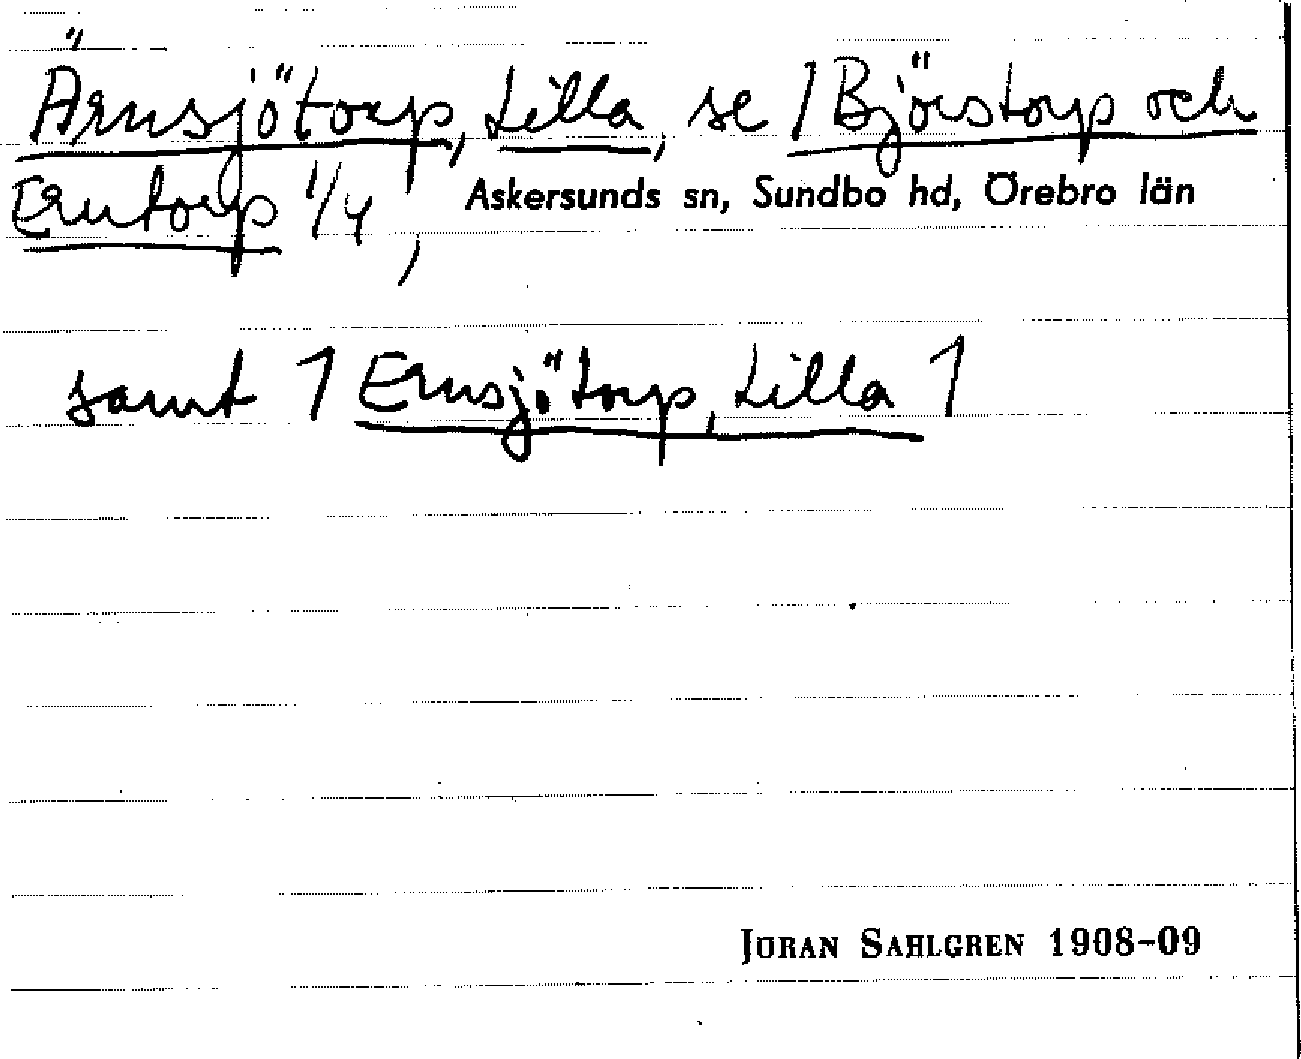 Ärnsjötorp, Lilla, se 1 Björstorp och
Erntorp 1/4,
Askersunds sn, Sundbo hd, Örebro län
samt 1 Ernsjötorp, Lilla 1
JÖRAN SAHLGREN 1908-09